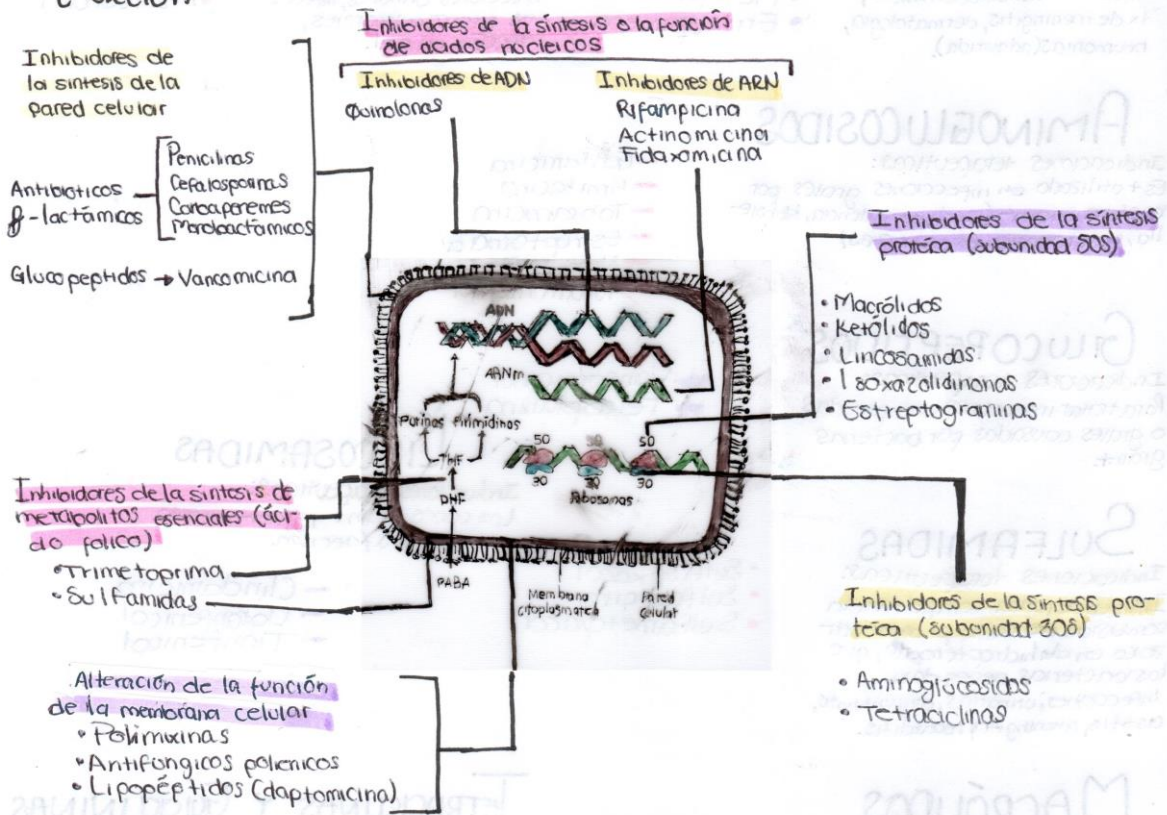 Inhibidores de la síntesis o la función
de acidos nucleicos
Inhibidores de
la sintesis de la
pared celular
Antibioticos
β-lactámicos
Penicilinas
Cefalosporinas
Carbapenemes
Monobactámicos
Glucopeptidos → Vancomicina
Inhibidores de ADN
Quinolonas
Inhibidores de ARN
Rifampicina
Actinomicina
Fidaxomicina
Inhibidores de la síntesis
protéica (subunidad 50S)
• Macrólidos
• Ketólidos
• Lincosamidas
• Isoxazolidinonas
• Estreptograminas
ADN
ARNm
Purinas Pirimidinas
THF
DHF
PABA
50 50 50
30 30 30
Ribosomas
Membrana
citoplasmatica
Pared
celular
Inhibidores de la síntesis de
metabolitos esenciales (áci-
do folico)
• Trimetoprima
• Sulfamidas
Inhibidores de la síntesis pro-
teíca (subunidad 30S)
• Aminoglucosidos
• Tetraciclinas
Alteración de la función
de la membrana celular
• Polimixinas
• Antifungicos polienicos
• Lipopéptidos (daptomicina)